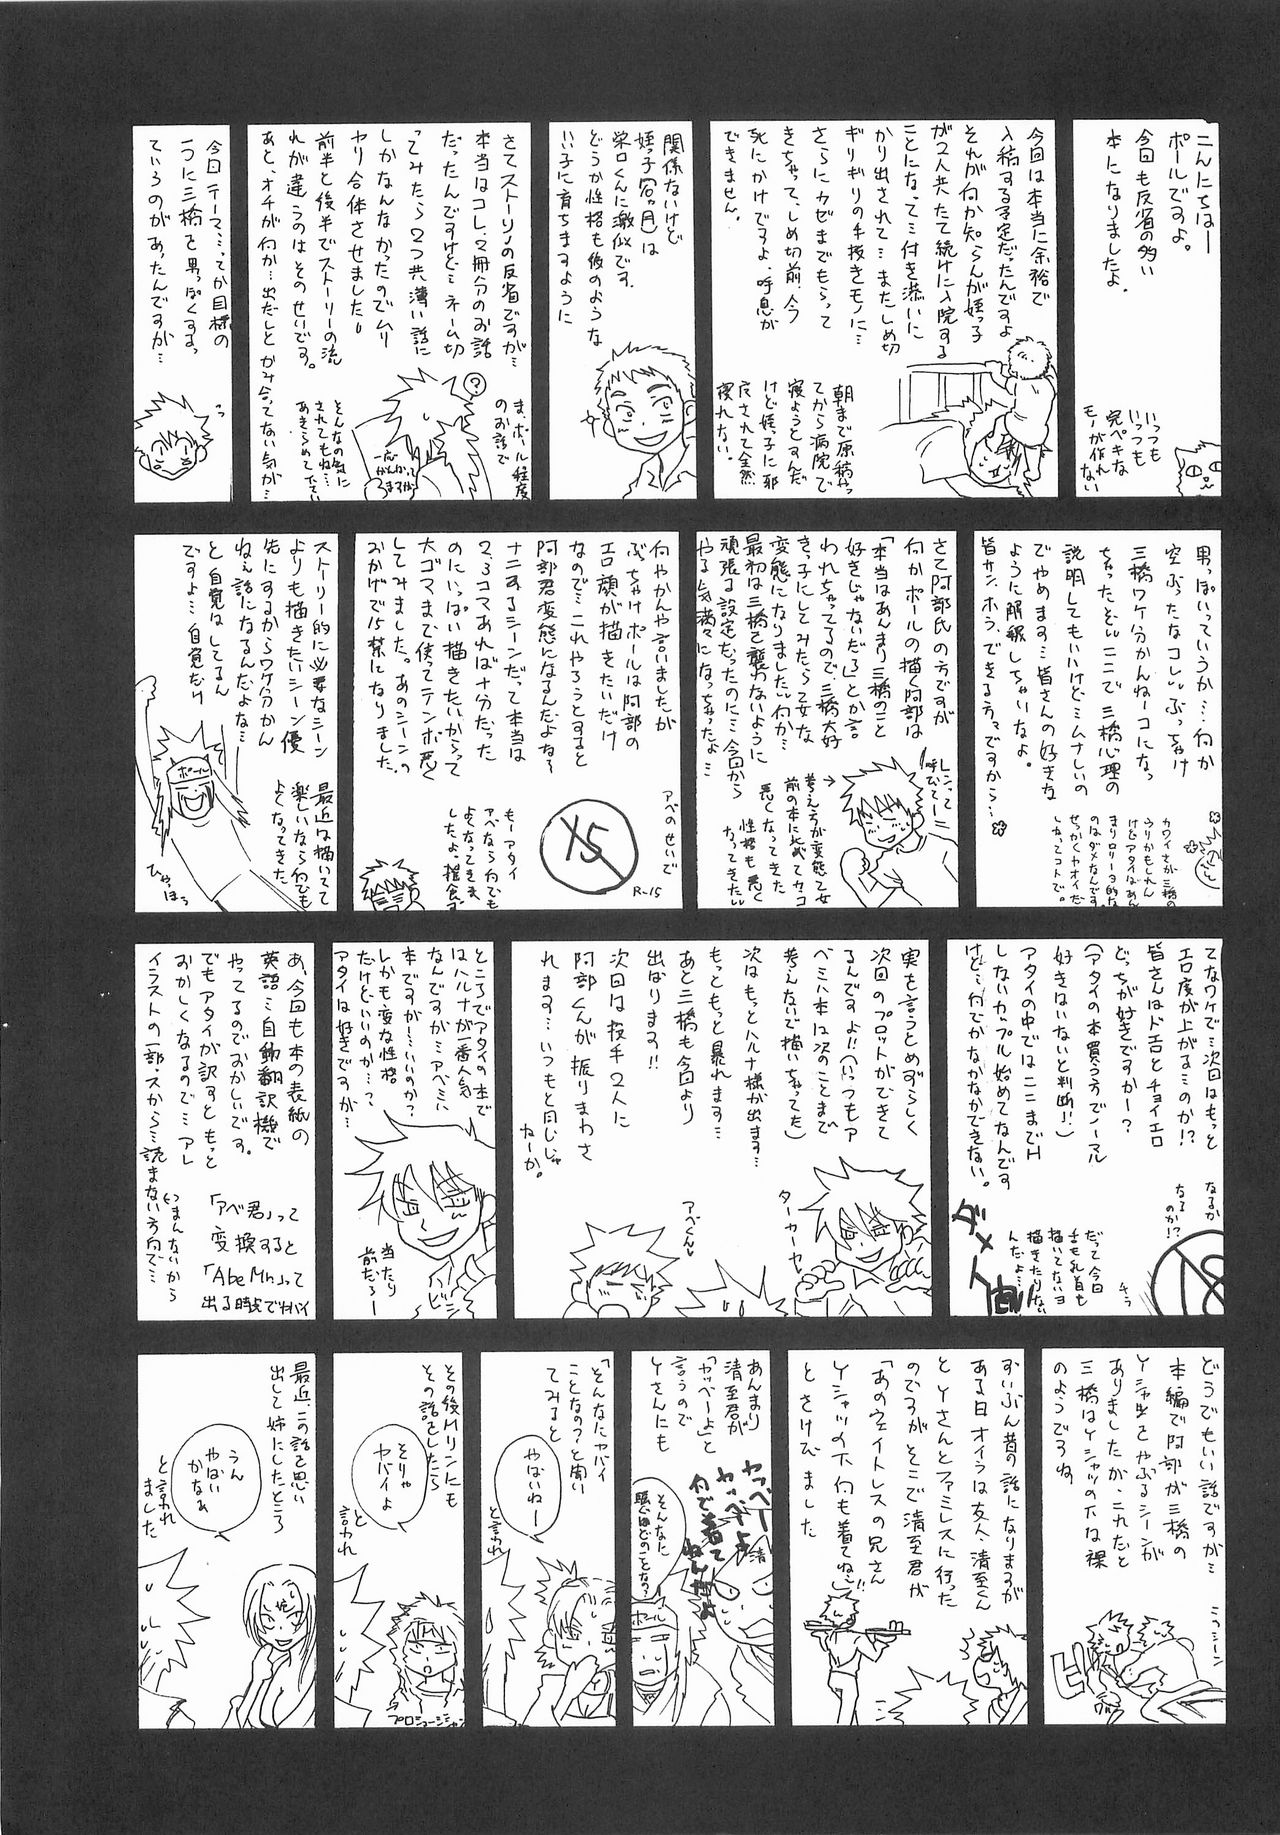 こんにちはー
ポールですよ。
今回も反省の多い
本になりましたよ。
いっつも
いっつも
完ペキな
モーが作れ
ない
今回は本当に余裕で
入稿する予定だったんですよ
それが何か知らんが姪っ子
が2人共たて続けに入院する
ことになって…付き添いに
かり出されて…またしめ切
ギリギリの手抜きモノに…
さらにカゼまでもらって
きちゃって、しめ切前、今
死にかけですよ。呼吸が
できません。
朝まで原稿やっ
てから病院で
寝ようとすんだ
けど姪っ子に邪
魔されて全然
寝れない。
関係ないけど
栄口くんに激似です。
どうか性格も彼のような
いい子に育ちますように
さてストーリーの反省ですが…
本当はコレ、2冊分のお話
だったんですけど…ネーム切
ってみたら2つ共薄い話に
しかなんなかったのでムリ
ヤリ合体させました。
前半と後半でストーリーの流
れが違うのはそのせいです。
あと、オチが何か…出だしとかみ合ってない気が…
ま、ポール程度
のお話で
そんなの気に
されてもね…
あきらめて下さい
一応
がんばって
ますが
今回テーマ…ってか目標の
一つに三橋を男っぽくする。
っていうのがあったんですが…
男っぽいっていうか…何か
空ぶったなコレ。ぶっちゃけ
三橋ワケ分かんねーコになっ
ちゃったどいいここで三橋心理の
説明してもいいけど…ムナしいの
でやめます…皆さんの好きな
ように解釈しちゃいなよ。
皆サン、ホラ、できる方々ですから…
さて阿部氏の方ですが
何かポールの描く阿部は
「本当はあんまり三橋のこと
好きじゃないだろ」とか言
われちゃってるので、三橋大好
きっ子にしてみたら乙女な
変態になりました。何か…
最初は三橋を襲わないように
頑張る設定だったのに…今回から
やる気満々になっちゃったよ…
レンって
呼びてー
考え方が変態乙女
前の本に比べてカッコ
悪くなってきた
性格も悪く
なってきた
何やかんや言いましたが
ぶっちゃけポールは阿部の
エロ顔が描きたいだけ
なので…これやろうとすると
阿部君変態になるんだよな〜
ナニするシーンだって本当は
2、3コマあれば十分だった
のにいっぱい描きたいからって
大ゴマまで使ってテンポ悪く
してみました。あのシーンの
おかげで15禁になりました。
アベのせいで
15
R-15
もーアタイ
アベなら何でも
よくなってきま
したよ。
ストーリー的に必要なシーン
よりも描きたいシーン優
先にするからワケ分かん
ねぇ話になるんだよな…
と自覚はしてるん
ですよ…自覚だけ
最近は描いてて
楽しいなら何でも
よくなってきた
ポール
ひゃっほぅ
てなワケで…次回はもっと
エロ度が上がる…のか!?
皆さんはドエロとチョイエロ
どっちが好きですかー?
(アタイの本買う方でノーマル
好きはいないと判断!)
アタイの中ではここまでH
しないカップル始めてなんです
けど…何でかなかなかできない。
なるか
なる
のか!?
だって今回
チ○も乳首も
描いてないヨ
描きたりない
んだよ…
18
実を言うとめずらしく
次回のプロットができて
るんですよ!(いっつもア
ベミハ本は次のことまで
考えないで描いちゃってた)
次はもっとハルナ様が出ます…
もっともっと暴れます…
あと三橋も今回より
出ばります!!
次回は投手2人に
阿部くんが振りまわさ
れます…いつもと同じじゃ
ねーか。
ターカーヤ
アベくん
ところでアタイの本で
はハルナが一番人気
なんですが…アベミハ
本ですが…いいのか?
しかも変な性格
だけどいいのか…?
アタイは好きですが…
当たり
前だろー
ビシ
あ、今回も本の表紙の
英語…自動翻訳機で
やってるのでおかしいです。
でもアタイが訳すともっと
おかしくなるので…アレ
イラストの一部。スから…読まない方向で…
(つまんないから
「アベ君」って
変換すると
「Abe Mr」って
出る時点でヤバイ
どうでもいい話ですが…
本編で阿部が三橋の
Yシャツをやぶるシーンが
ありましたが、こいたと
三橋はYシャツの下は裸
のようですね。
ずいぶん昔の話になりますが
ある日オイラは友人清至くん
とYさんとファミレスに行った
のですがそこで清至君が
「あのウェイトレスの兄さん
Yシャツの下何も着てねぇ!!」
とさけびました
あんまり
清至君が
「やっべーよ」と
言うので
Yさんにも
やっべー
やっべーよ
清
そんなに
騒ぐほどのことなの?
ポール
「そんなにヤバイ
ことなの?」と聞い
てみると
やばいねー
と言われ
その後Mリンにも
その話をしたら
そりゃ
ヤバイよ
と
言われ
最近、この話を思い
出して姉にしたところ
うん
やばい
かなぁ
と言われ
ました
姉